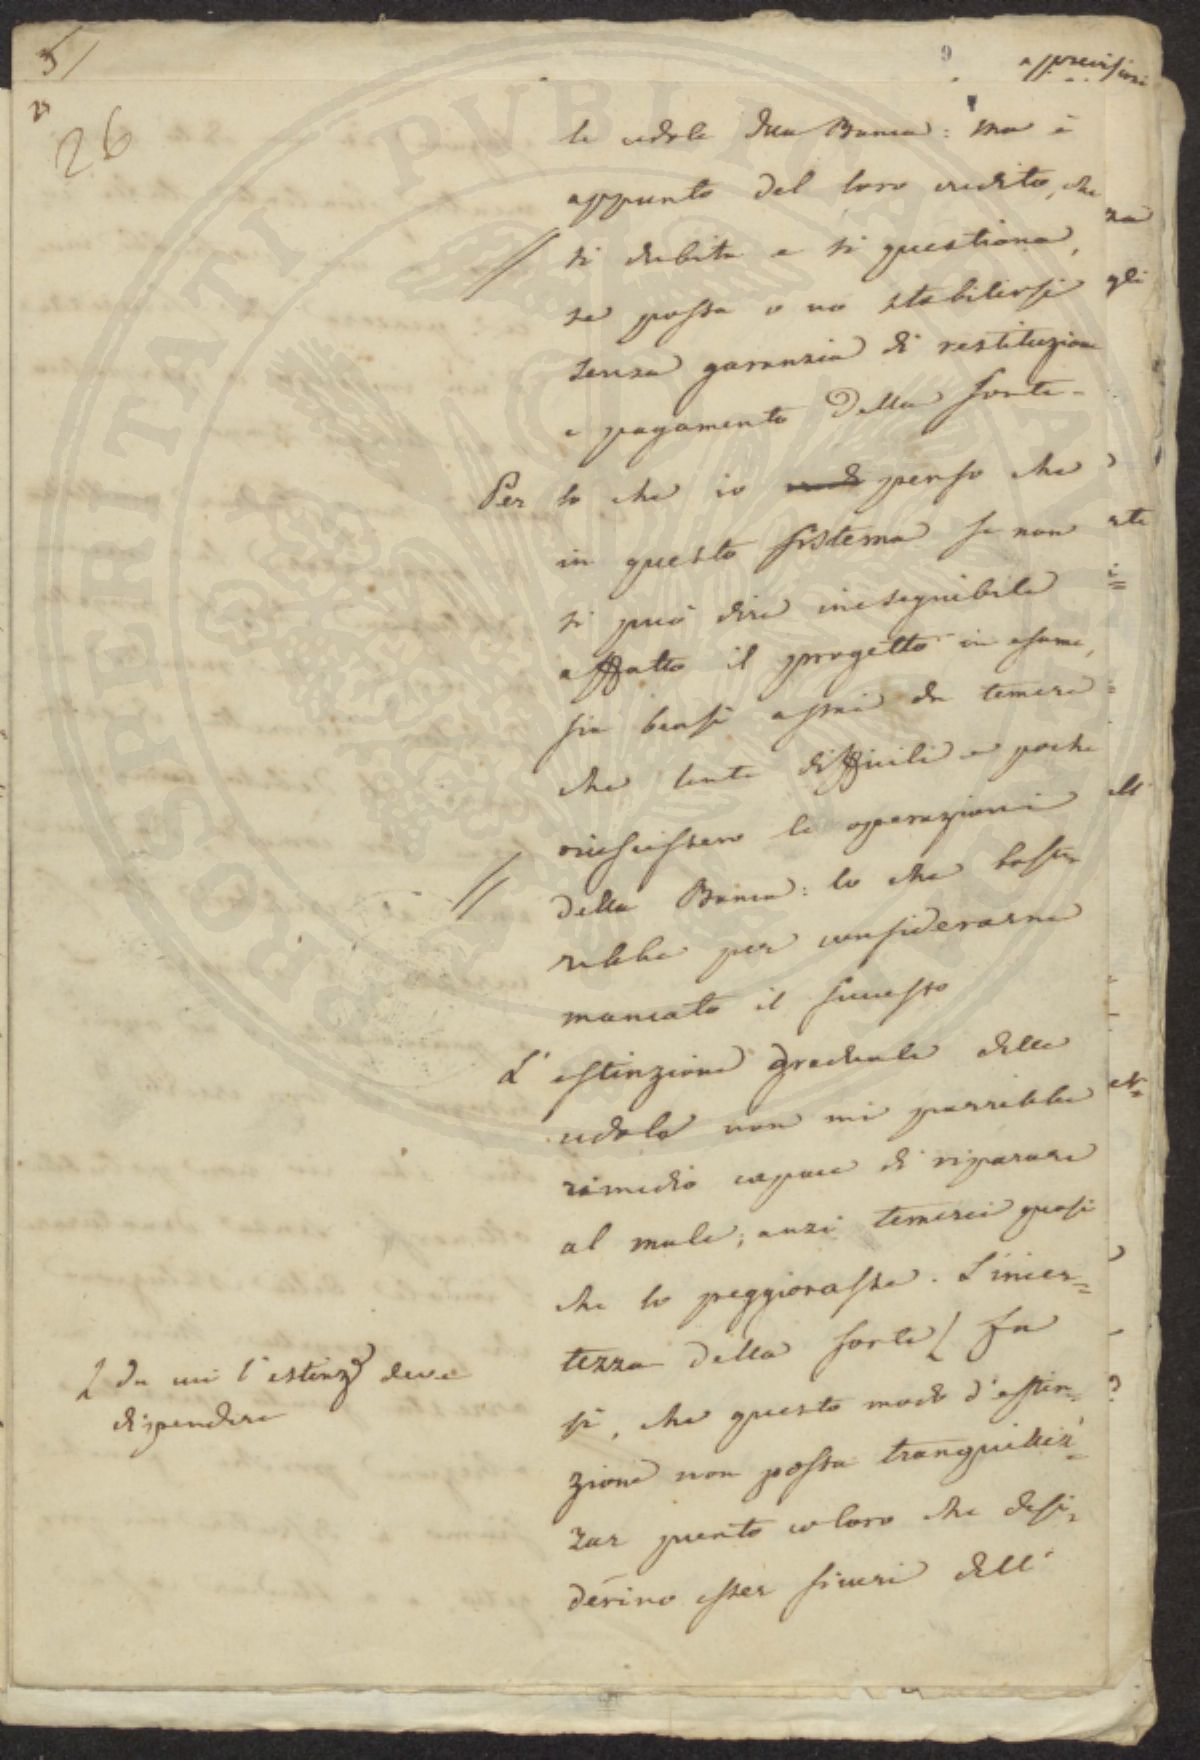 5/
26
le cedole della Banca: ma è
appunto del loro credito, che
si dubita e si questiona,
se possa o no stabilirsi
senza garanzia di restituzione
e pagamento della sorte.
Per lo che io penso che
in questo sistema se non
si può dire ineseguibile
affatto il progetto in esame,
sia bensì assai da temere
che lente difficili e poche
riuscissero le operazioni
della Banca: lo che baste
rebbe per considerarne
mancato il successo
L'estinzione graduale delle
cedole non mi parrebbe
rimedio capace di riparare
al male; anzi temerei quasi
che lo peggiorasse. L'incer=
tezza della sorte fa
sì, che questo modo d'estin=
zione non possa tranquilliz=
zar punto coloro che desi=
derino esser sicuri dell'
da cui l'estinz.e deve
dipendere
PROSPERITATI PVBLICAE